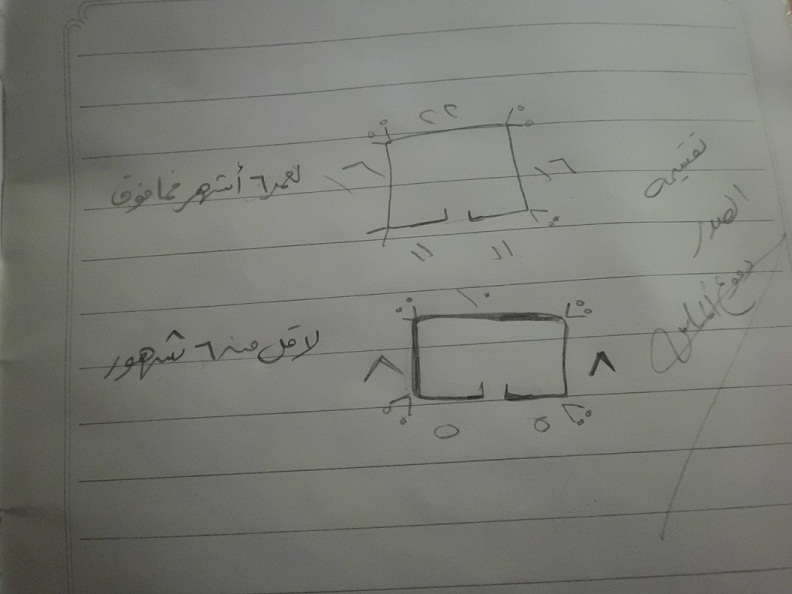 تقسيمه
الصدر
٢٢
١٦
١٦
لعمر ٦ أشهر فما فوق
١١
١١
١٠
٨
٨
لاقل من ٦ شهور
٥
٥